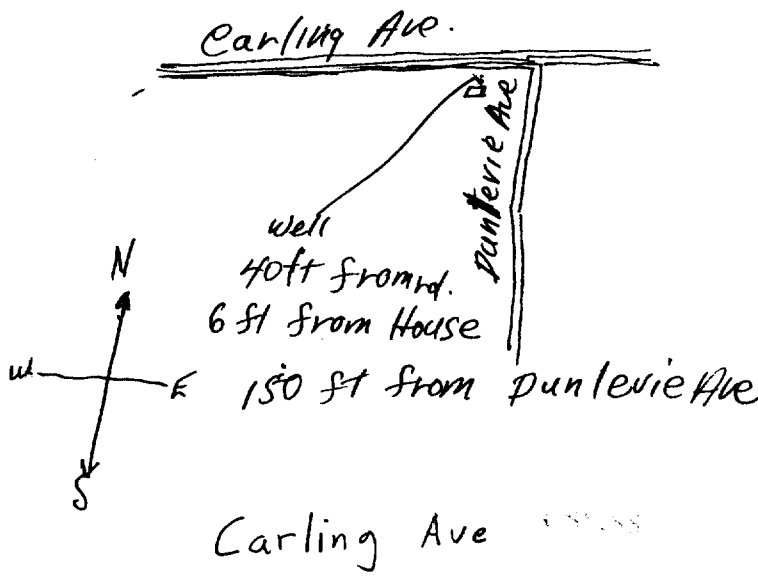 Carling Ave.
Dunlevie Ave
Well
40ft from rd.
6 ft from House
150 ft from Dunlevie Ave
N
W
E
S
Carling Ave